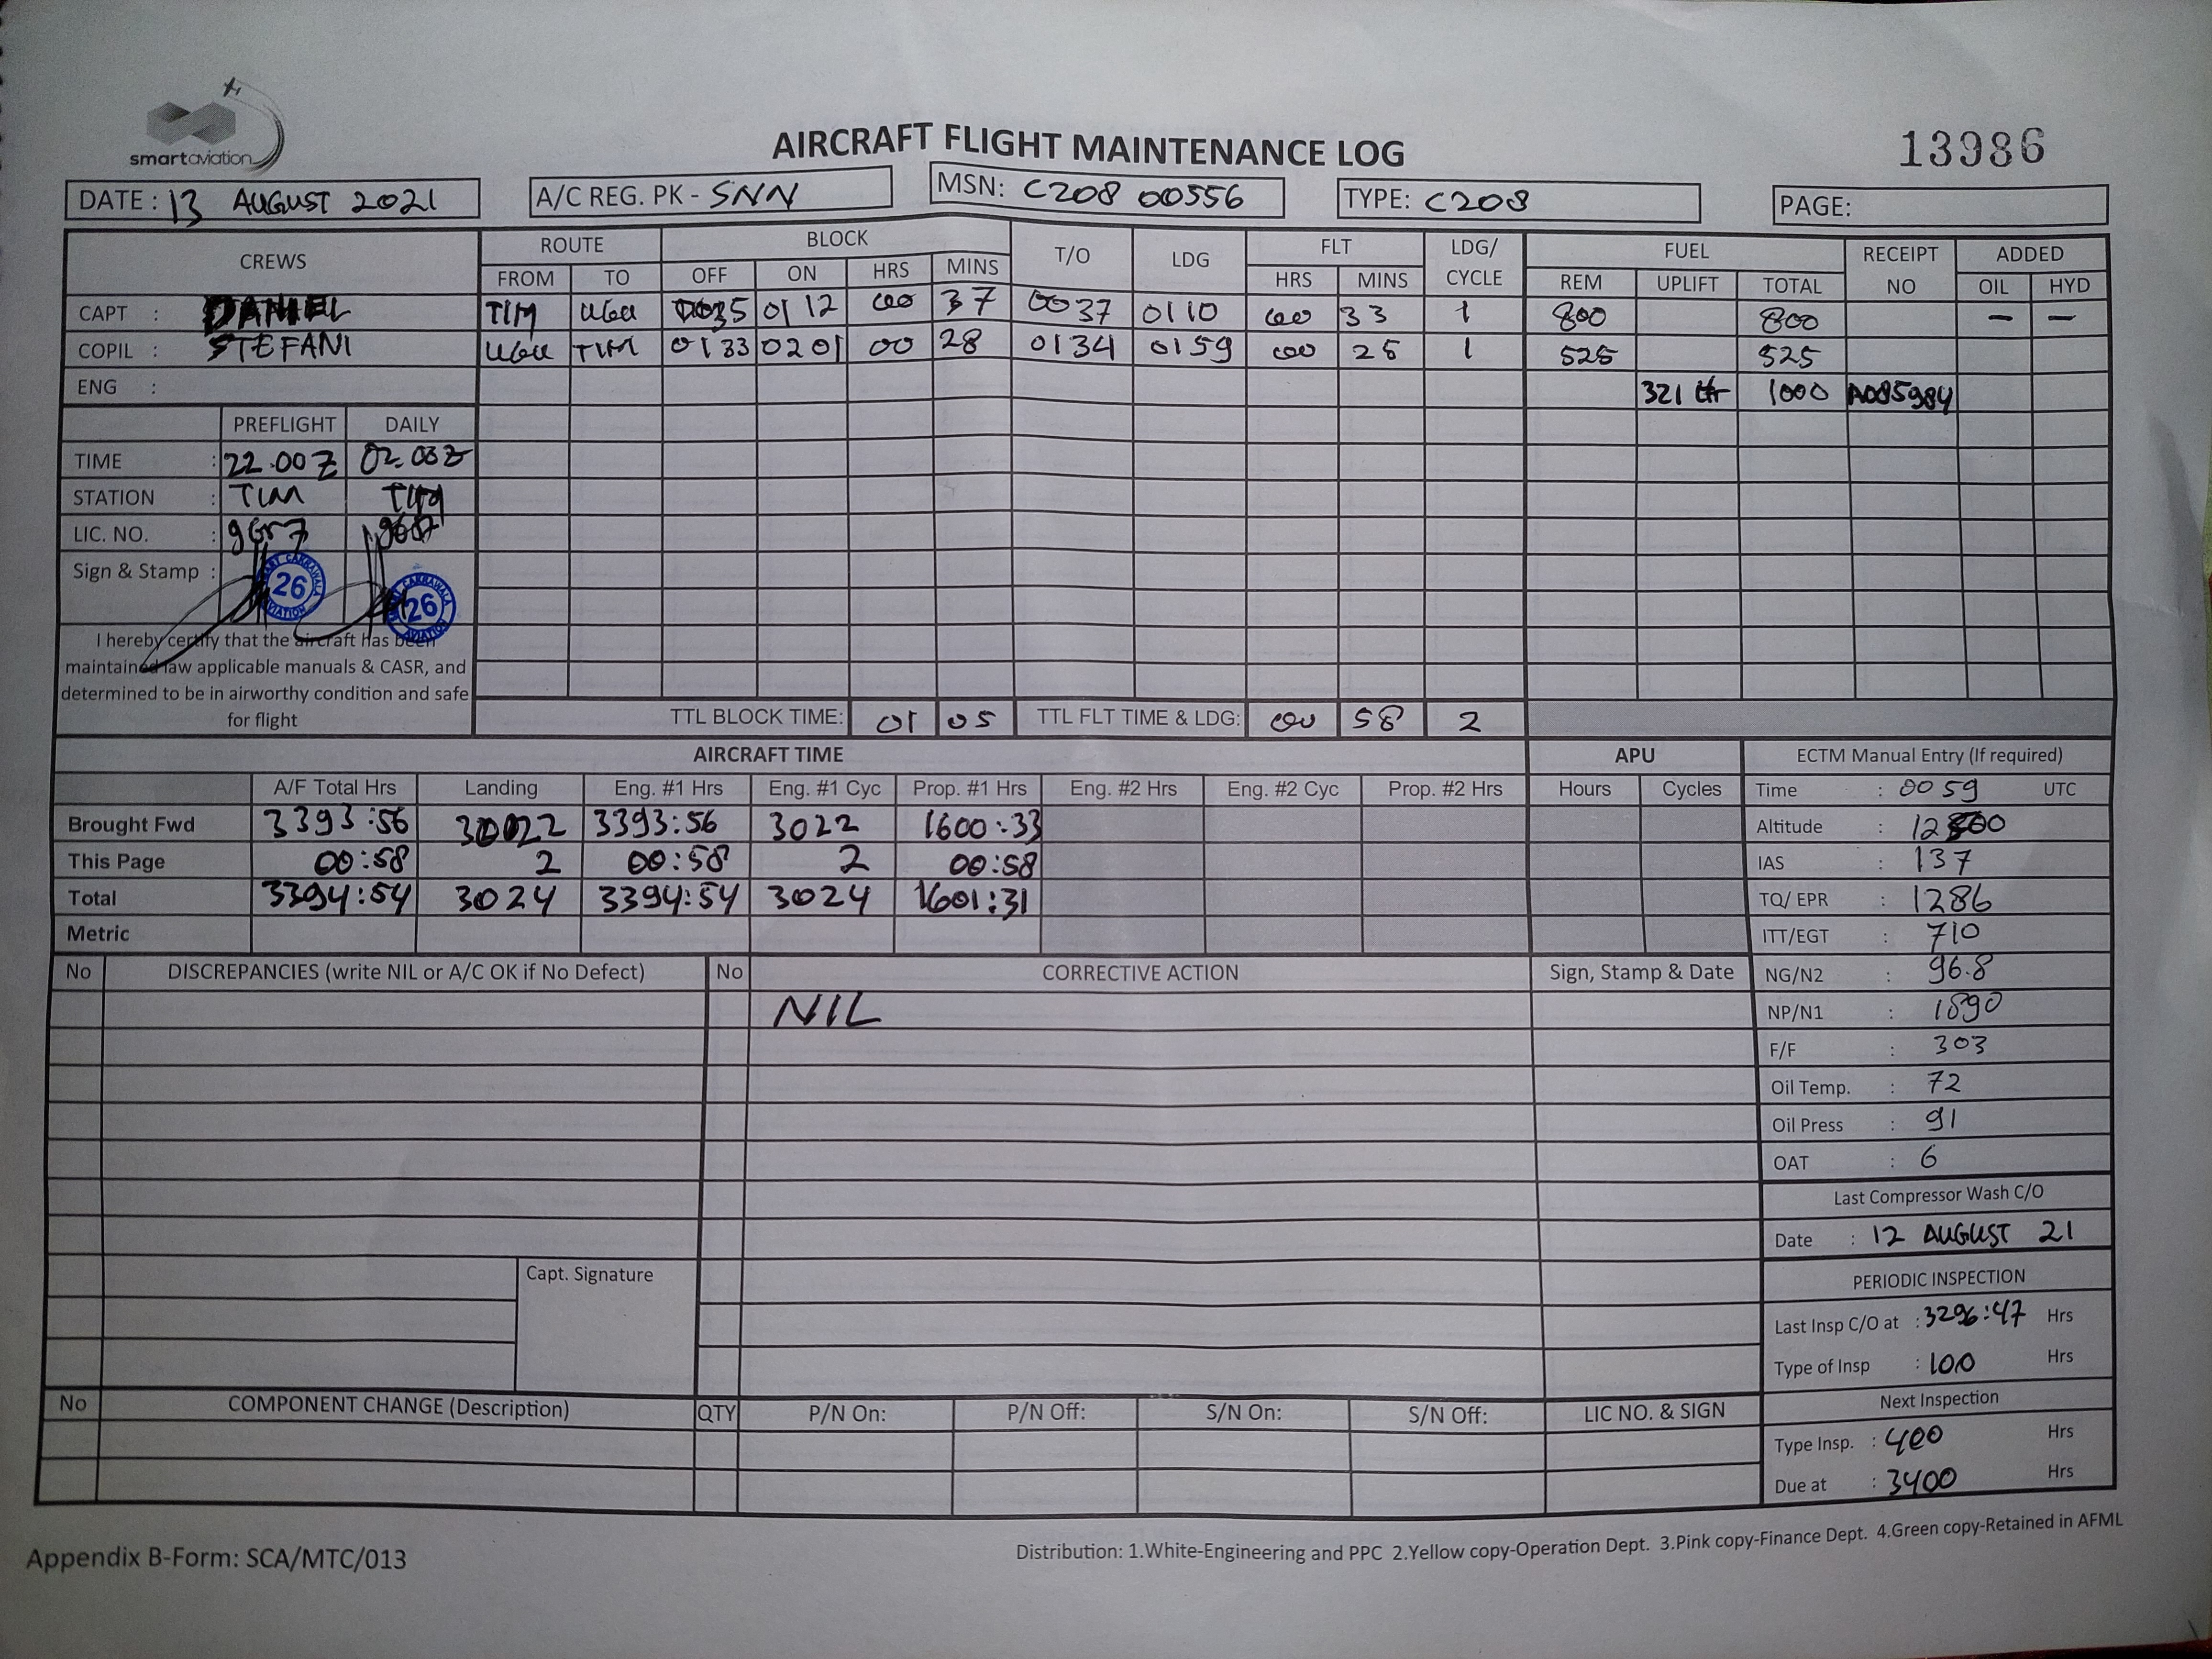 smartaviation
AIRCRAFT FLIGHT MAINTENANCE LOG
13986
DATE : 13 AUGUST 2021
A/C REG. PK - SNN
MSN: C208 00556
TYPE: C208
PAGE:
CREWS ROUTE BLOCK T/O LDG FLT LDG/ CYCLE FUEL RECEIPT NO ADDED
FROM TO OFF ON HRS MINS HRS MINS REM UPLIFT TOTAL OIL HYD
CAPT : DANIEL TIM UGU 0035 0112 00 37 0037 0110 00 33 1 800 800 — —
COPIL : STEFANI UGU TIM 0133 0201 00 28 0134 0159 00 25 1 525 525
ENG : 321 ltr 1000 A085984
PREFLIGHT DAILY
TIME : 22.00Z 02.03Z
STATION : TIM TIM
LIC. NO. :
Sign & Stamp :
26 AVIATION
CAKRAWALA 26 AVIATION
I hereby certify that the aircraft has been
maintained law applicable manuals & CASR, and
determined to be in airworthy condition and safe
for flight
TTL BLOCK TIME: 01 05 TTL FLT TIME & LDG: 00 58 2
AIRCRAFT TIME APU
A/F Total Hrs Landing Eng. #1 Hrs Eng. #1 Cyc Prop. #1 Hrs Eng. #2 Hrs Eng. #2 Cyc Prop. #2 Hrs Hours Cycles
Brought Fwd 3393:56 3022 3393:56 3022 1600:33
This Page 00:58 2 00:58 2 00:58
Total 3394:54 3024 3394:54 3024 1601:31
Metric
ECTM Manual Entry (If required)
Time : 0059 UTC
Altitude :
IAS : 137
TQ/ EPR : 1286
ITT/EGT : 710
NG/N2 : 96.8
NP/N1 : 1890
F/F : 303
Oil Temp. : 72
Oil Press : 91
OAT : 6
Last Compressor Wash C/O
Date : 12 AUGUST 21
PERIODIC INSPECTION
Last Insp C/O at : 3296:47 Hrs
Type of Insp : 100 Hrs
Next Inspection
Type Insp. : 400 Hrs
Due at : 3400 Hrs
No DISCREPANCIES (write NIL or A/C OK if No Defect) No CORRECTIVE ACTION Sign, Stamp & Date
NIL
Capt. Signature
No COMPONENT CHANGE (Description) QTY P/N On: P/N Off: S/N On: S/N Off: LIC NO. & SIGN
Appendix B-Form: SCA/MTC/013
Distribution: 1.White-Engineering and PPC 2.Yellow copy-Operation Dept. 3.Pink copy-Finance Dept. 4.Green copy-Retained in AFML